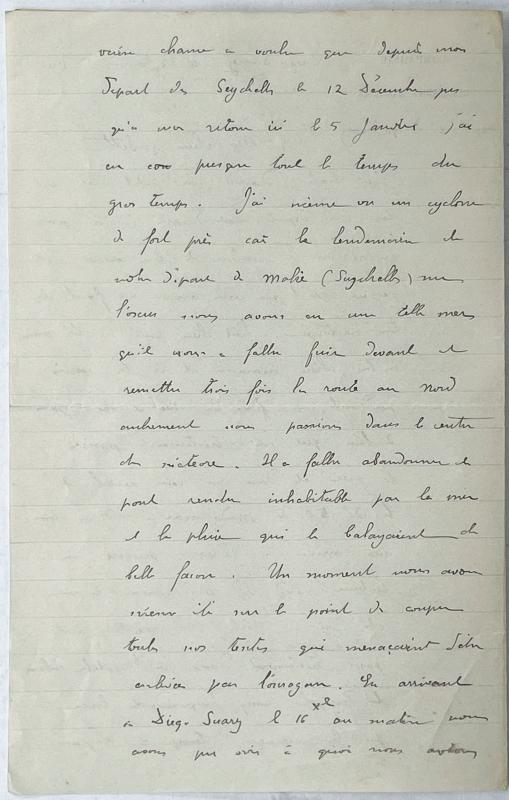 chance a voulu que depuis mon
départ des Seychelles le 12 Décembre jus
qu'à mon retour ici le 5 Janvier j'ai
eu presque tout le temps du
gros temps. J'ai même vu un cyclone
de fort près car le lendemain de
notre départ de Mahé (Seychelles) sur
nous avons eu une telle mer
qu'il nous a fallu fuir devant et
remettre trois fois la route au Nord
autrement nous passions dans le centre
du météore. Il a fallu abandonner le
pont rendu inhabitable par la mer
et la pluie qui le balayaient de
belle façon. Un moment nous avons
même été sur le point de couper
toutes nos tentes qui menaçaient d'être
enlevées par l'ouragan. En arrivant
à Diego Suarez le 16 Xbre au matin nous
avons pu voir à quoi nous avions